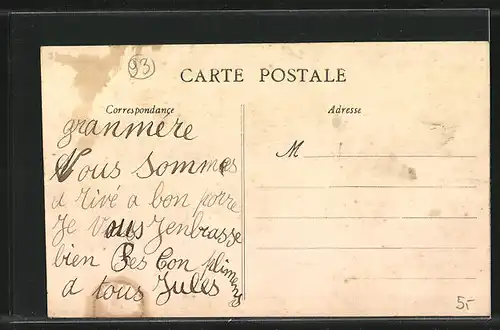 93
CARTE POSTALE
Correspondance
Adresse
granmére
Nous sommes
a rivé a bon porre
Je vous Jenbrasse
bien Ses Con plimens
a tous Jules
M
5-